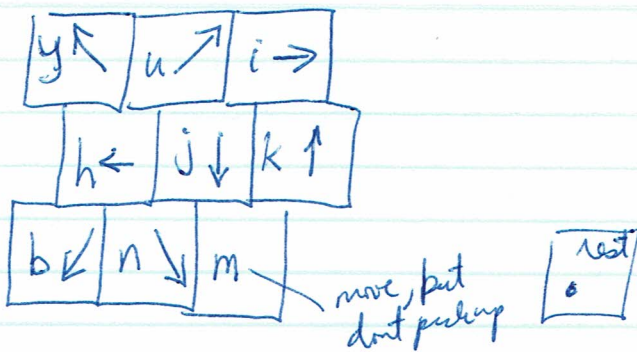 y↖ u↗ i→
h← j↓ k↑
b↙ n↘ m
move, but
dont pickup
rest
.